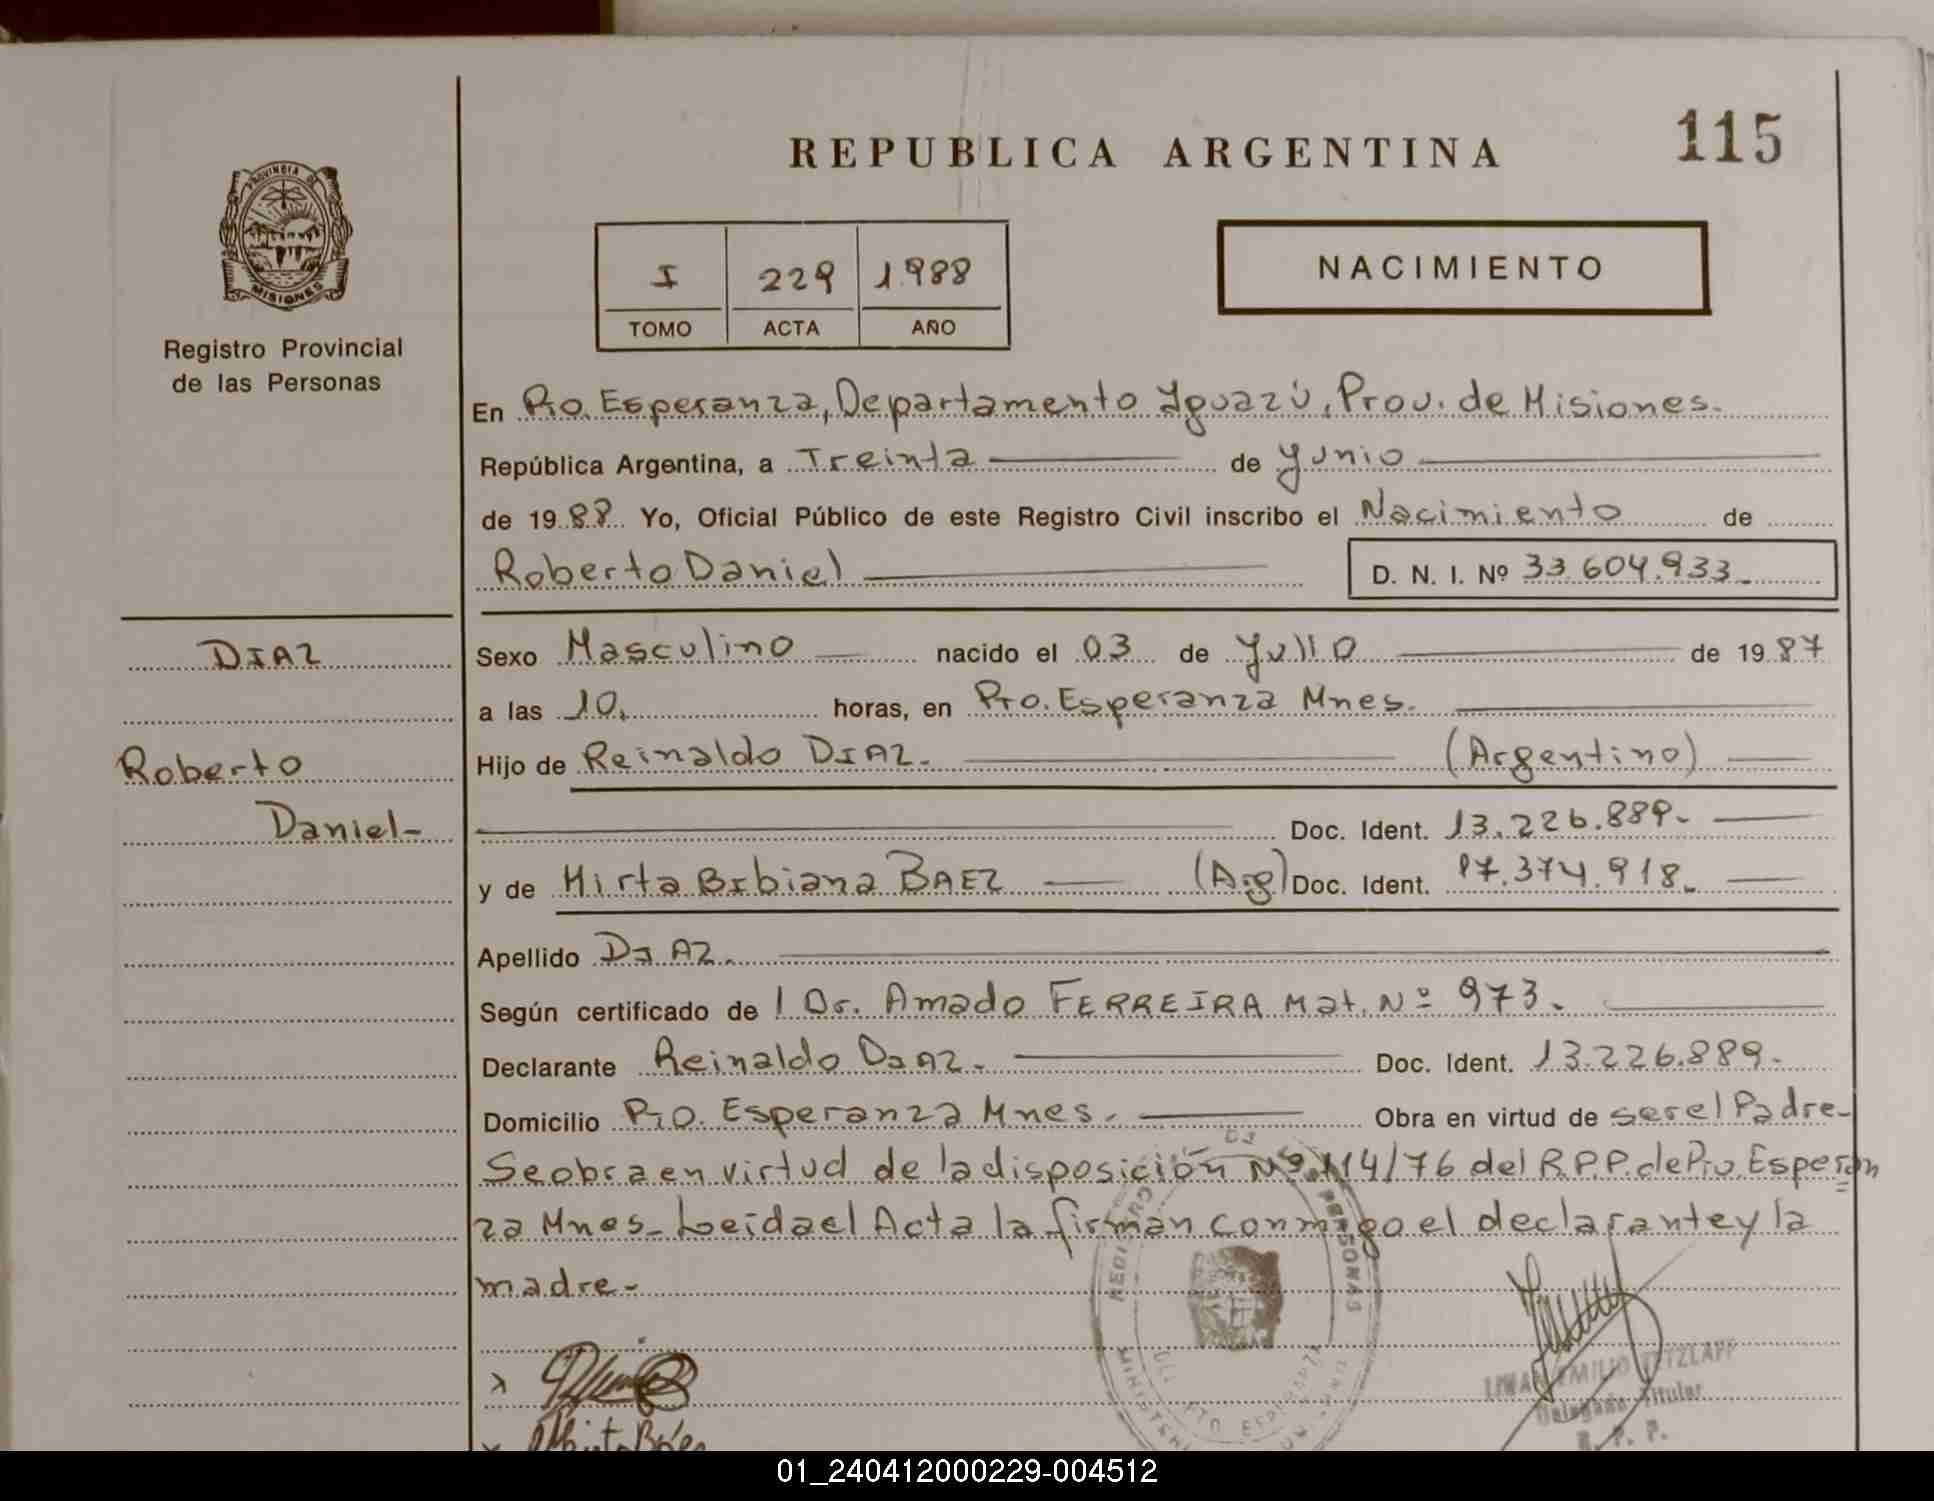 REPUBLICA ARGENTINA
115
PROVINCIA DE
MISIONES
Registro Provincial
de las Personas
I 229 1.988
TOMO ACTA AÑO
NACIMIENTO
En Pto. Esperanza, Departamento Yguazú, Prov. de Misiones.
República Argentina, a Treinta de Yunio
de 19 88 Yo, Oficial Público de este Registro Civil inscribo el Nacimiento de
Roberto Daniel D. N. I. Nº 33.604.933.
DIAZ
Roberto
Daniel-
Sexo Masculino nacido el 03 de Yulio de 19 87
a las 10. horas, en Pto. Esperanza Mnes.
Hijo de Reinaldo DIAZ. (Argentino)
Doc. Ident. 13.226.889.-
y de Mirta Bibiana BAEZ (Arg) Doc. Ident. 17.374.918.
Apellido DIAZ.
Según certificado de l Dr. Amado FERREIRA Mat. Nº 973.
Declarante Reinaldo DIAZ.- Doc. Ident. 13.226.889.
Domicilio Pto. Esperanza Mnes. Obra en virtud de ser el Padre-
Se obra en virtud de la disposición Nº 114/76 del R.P.P. de Pto. Esperan
za Mnes- Leida el Acta la firman conmigo el declarante y la
madre-
REGISTRO PERSONAS
EMILIO TETZLAFF
Delegado Titular
R. P. P.
01_240412000229-004512